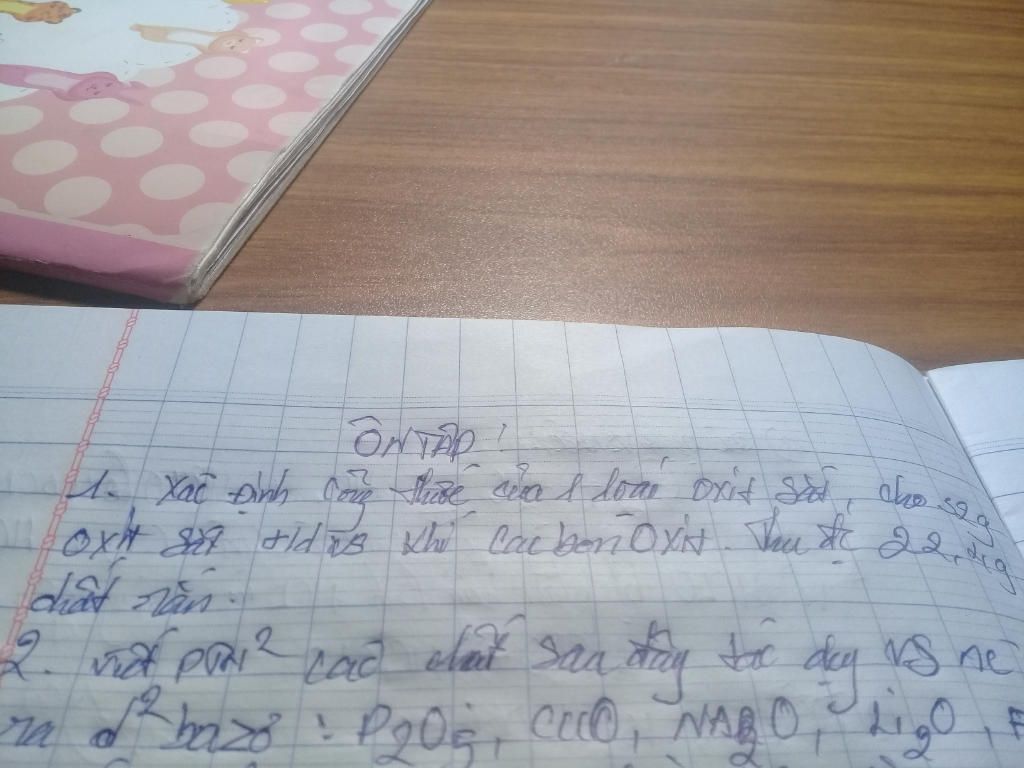 ÔN TẬP!
1. Xác định công thức của 1 loại oxit sắt, cho 32g
oxit sắt t/d vs khí cacbon oxit. Thu đc 22,4g
chất rắn.
2. viết PTH² các chất sau đây tác dụng vs nc
ra d² bazơ : P2O5, CuO, NA2O, Li2O, F